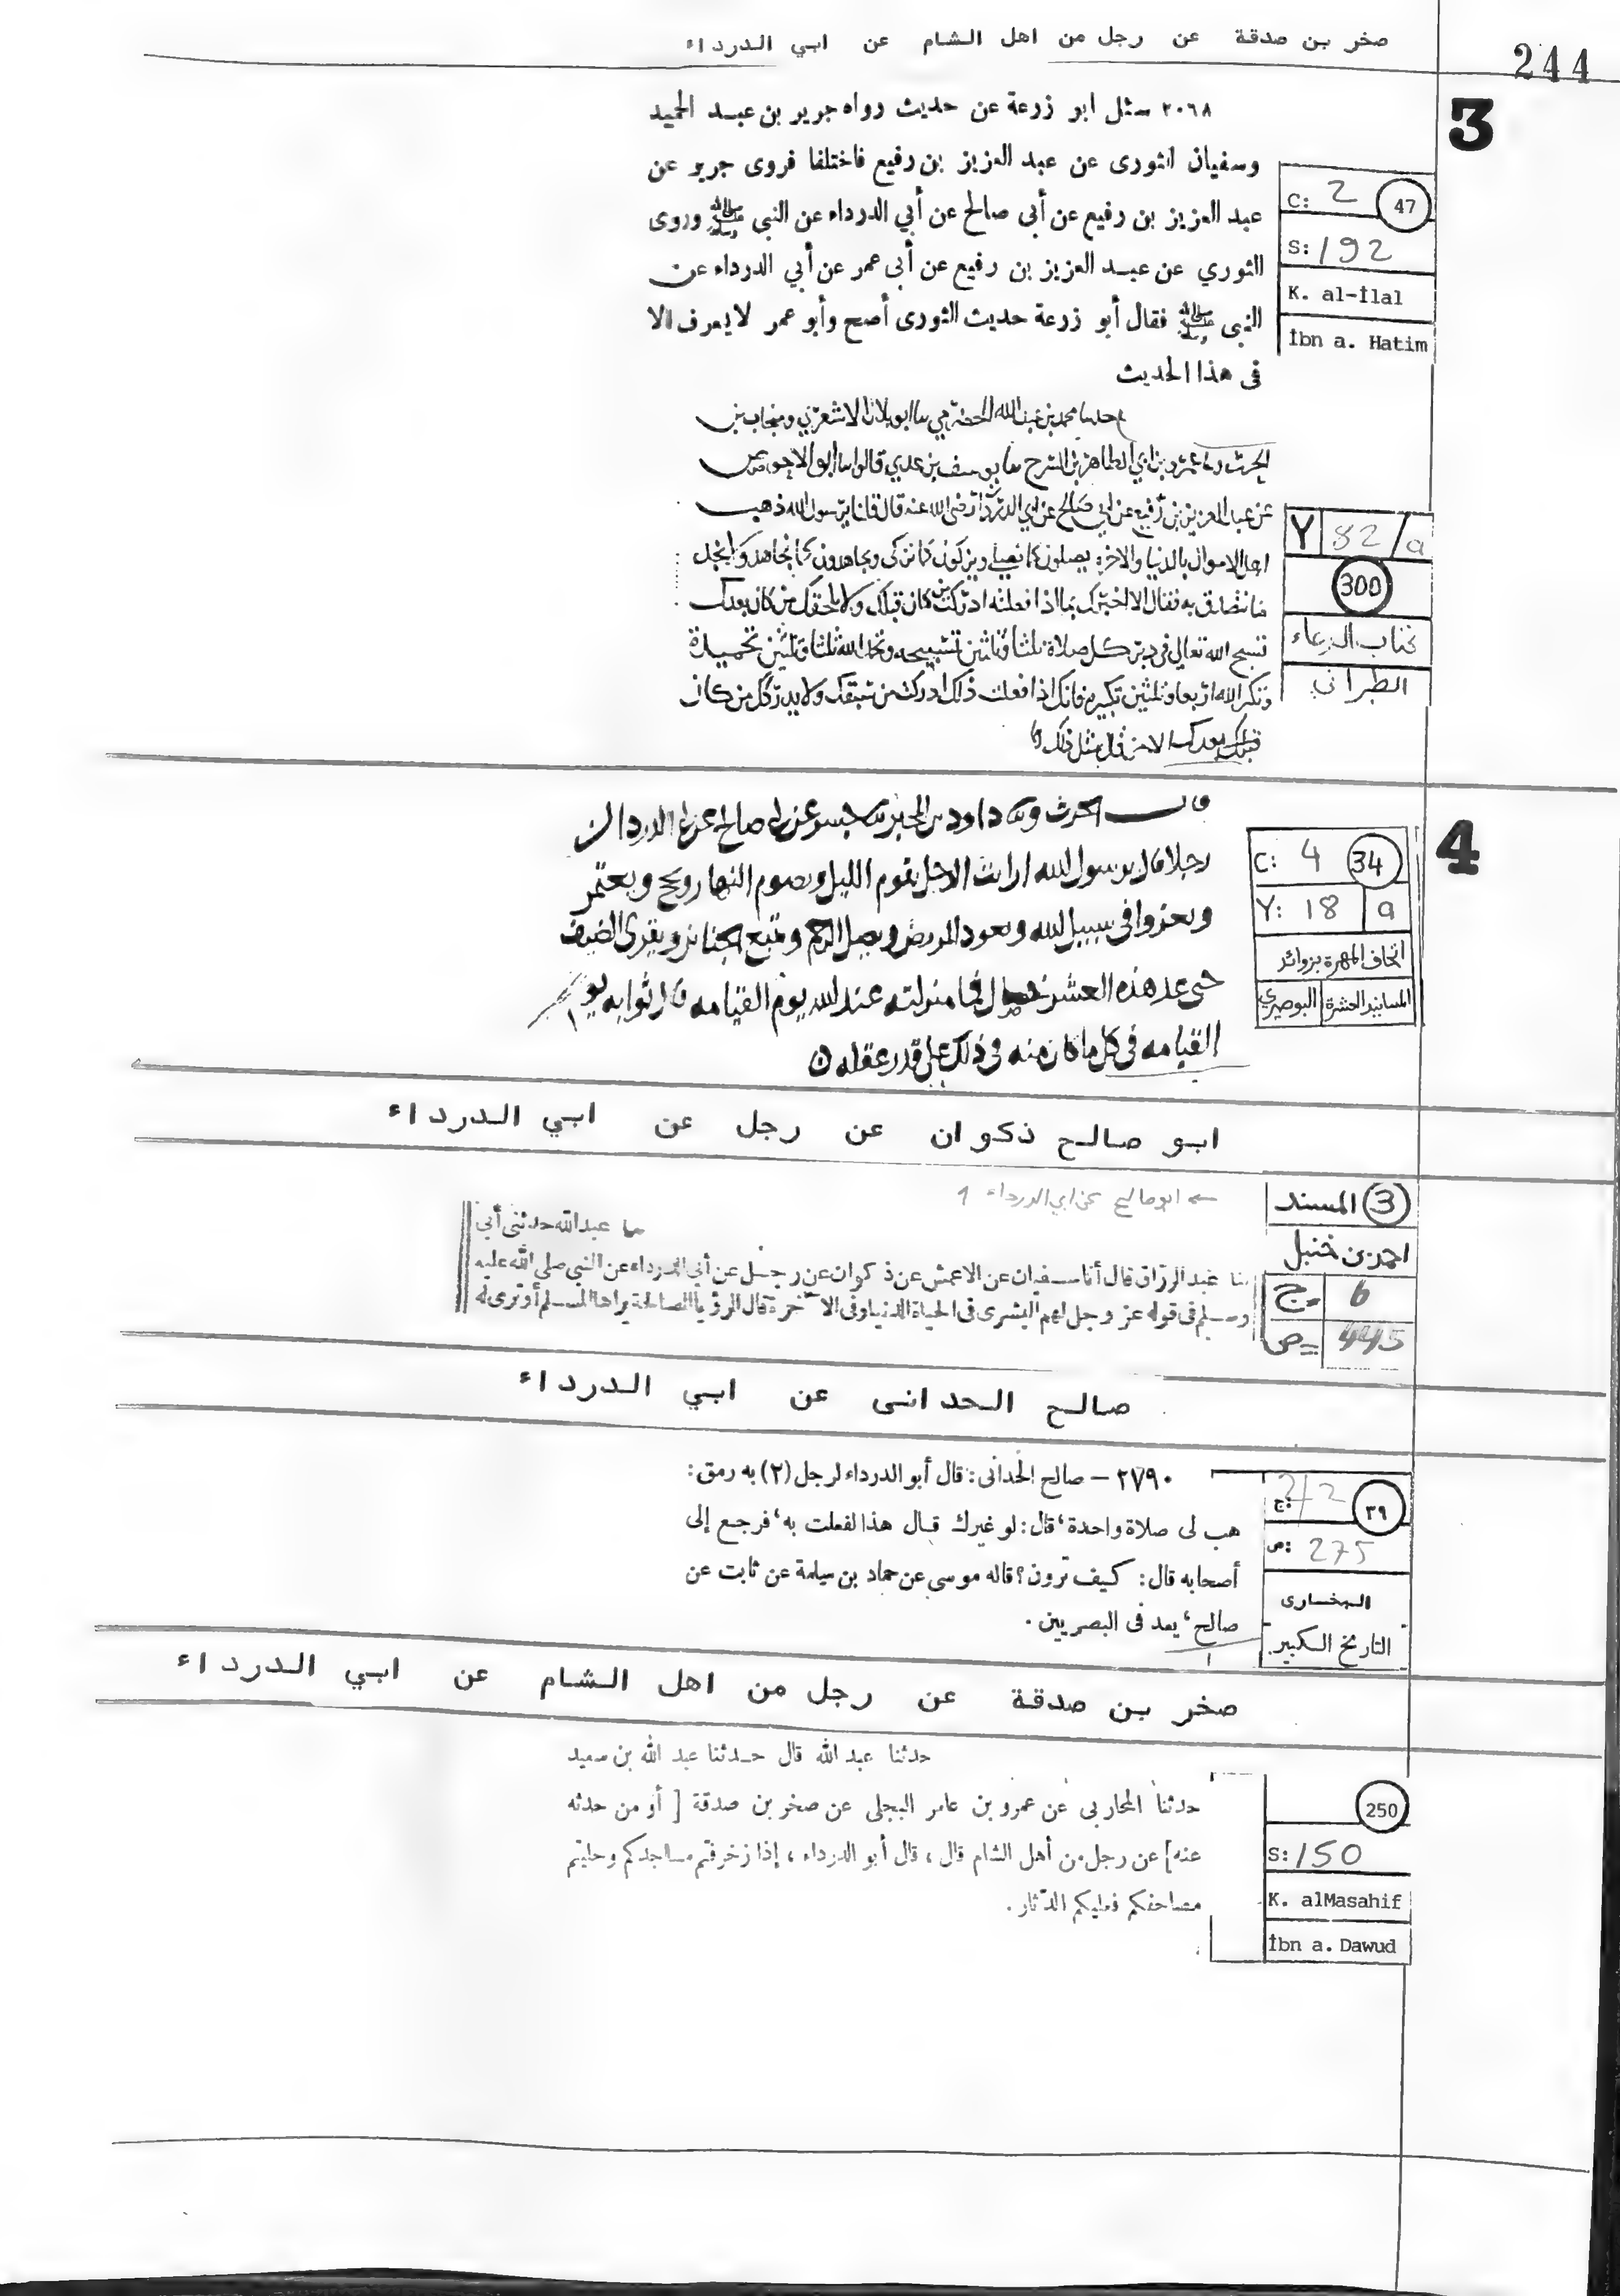 صخر بن صدقة عن رجل من اهل الشام عن ابي الدرداء
244
3
٢٠٦٨ سئل ابو زرعة عن حديث رواه جرير بن عبد الحميد
وسفيان الثورى عن عبد العزيز بن رفيع فاختلفا فروى جرير عن
عبد العزيز بن رفيع عن أبى صالح عن أبي الدرداء عن النبي ﷺ وروى
الثوري عن عبد العزيز بن رفيع عن أبى عمر عن أبي الدرداء عن
النبى ﷺ فقال أبو زرعة حديث الثورى أصح وأبو عمر لا يعرف الا
فى هذا الحديث
C: 2 47
S: 192
K. al-İlal
İbn a. Hatim
حدثنا محمد بن عبد الله الحضرمي ثنا ابو بلال الاشعري ومنجاب بن
الحرث وثنا عمرو بن ابي الطاهر بن السرح ثنا يوسف بن عدي قالوا ثنا ابو الاحوص
عن عبد العزيز بن رفيع عن ابي صالح عن ابي الدرداء رضى الله عنه قال قلنا يرسول الله ذهب
اهل الاموال بالدنيا والاخرة يصلون كما نصلي ويزكون كما نزكى ويجاهدون كما نجاهد ولا نجد
ما نتصدق به فقال الا اخبرك بما اذا فعلته ادركت من كان قبلك ولا يلحقك من كان بعدك
تسبح الله تعالى في دبر كل صلاة ثلثا وثلثين تسبيحه وتحمد الله ثلثا وثلثين تحميدة
وتكبر الله اربعا وثلثين تكبيره فانك اذا فعلت ذلك ادركت من سبقك ولا يدركك من كان
قبلك بعدك الا من قال مثل ذلك
Y 82/a
300
كتاب الدعاء
الطبراني
4
قال الحرث وثنا داود بن المحبر ثنا جسر عن ابي صالح عن ابي الدردا ان
رجلا قال يرسول الله ارايت الرجل يقوم الليل ويصوم النهار ويحج ويعتمر
ويغزوا في سبيل الله ويعود المريض ويصل الرحم وتبع الجنائز ويقرى الضيف
حتى عد هذه العشر خصال فما منزلته عند الله يوم القيامه قال ثوابه يو
القيامه في كل ما كان منه في ذلك على قدر عقله
C: 4 34
Y: 18 a
اتحاف المهرة بزوائد
المسانيد العشرة البوصيري
ابو صالح ذكوان عن رجل عن ابي الدرداء
← ابو صالح عن ابي الدرداء 1
ثنا عبد الله حدثنى أبي
ثنا عبد الرزاق قال أنا سفيان عن الاعمش عن ذكوان عن رجل عن أبى الدرداء عن النبى صلى الله عليه
وسلم فى قوله عز وجل لهم البشرى فى الحياة الدنيا وفى الآخرة قال الرؤيا الصالحة يراها المسلم أو ترى له
3 المسند
احمد بن حنبل
ج 6
ص 445
صالح الحدانى عن ابي الدرداء
٢٧٩٠ – صالح الحدانى: قال أبو الدرداء لرجل (٢) به رمق:
هب لى صلاة واحدة، قال: لو غيرك قال هذا لفعلت به، فرجع إلى
أصحابه قال: كيف ترون؟ قاله موسى عن حماد بن سلمة عن ثابت عن
صالح، يعد فى البصريين.
ج: 2/2 ٣٩
ص: 275
البخارى
التاريخ الكبير
صخر بن صدقة عن رجل من اهل الشام عن ابي الدرداء
حدثنا عبد الله قال حدثنا عبد الله بن سعيد
حدثنا المحاربى عن عمرو بن عامر البجلى عن صخر بن صدقة [ أو من حدثه
عنه] عن رجل من أهل الشام قال، قال أبو الدرداء، إذا زخرفتم مساجدكم وحليتم
مصاحفكم فعليكم الدثار.
250
S: 150
K. alMasahif
İbn a. Dawud